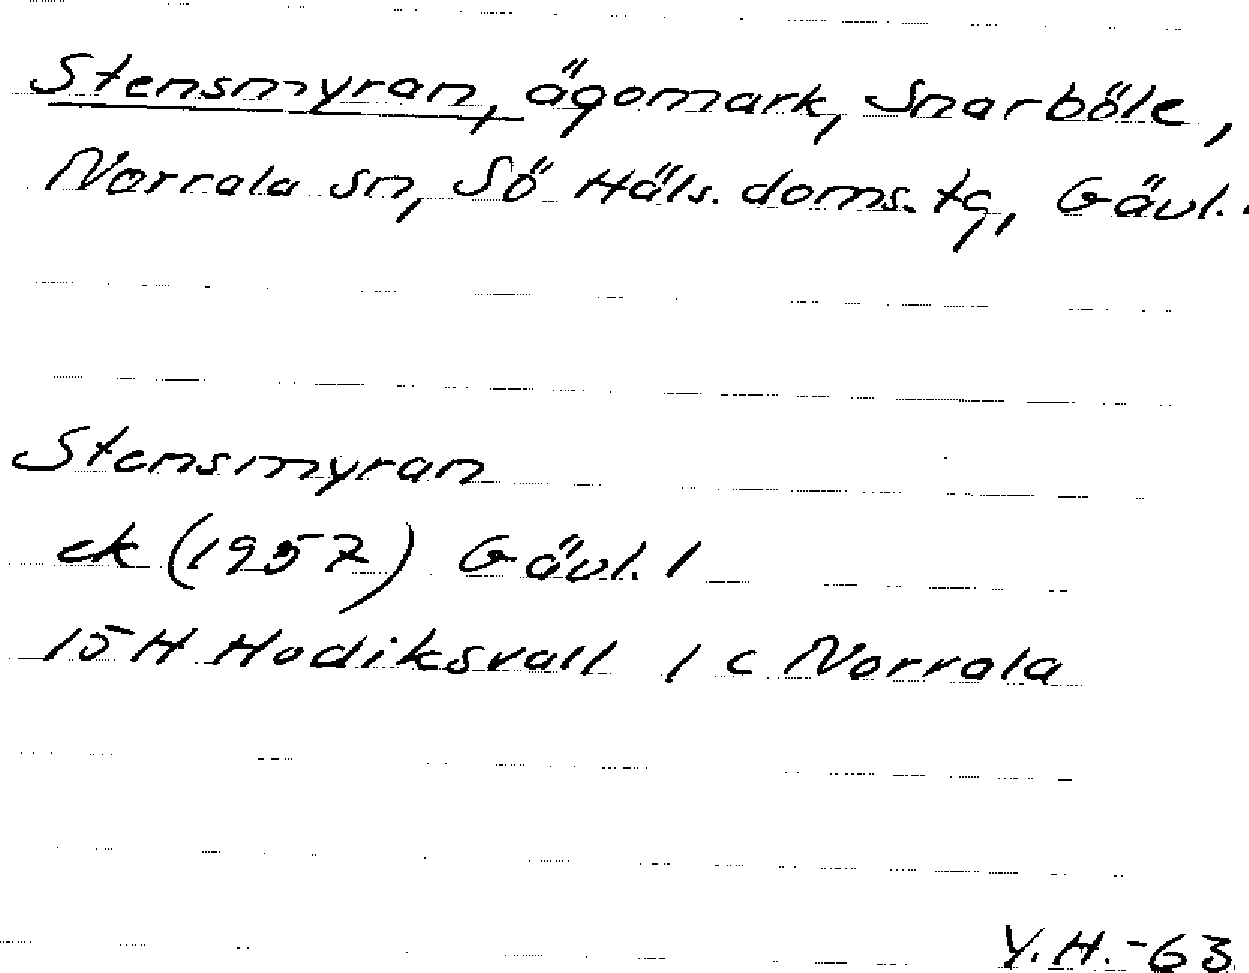 Stensmyran, ägomark, Snarböle,
Norrala sn, Sö Häls. doms. tg, Gävl. l
Stensmyran
ek (1957) Gävl. l
15 H Hudiksvall 1 c Norrala
Y.H.-63